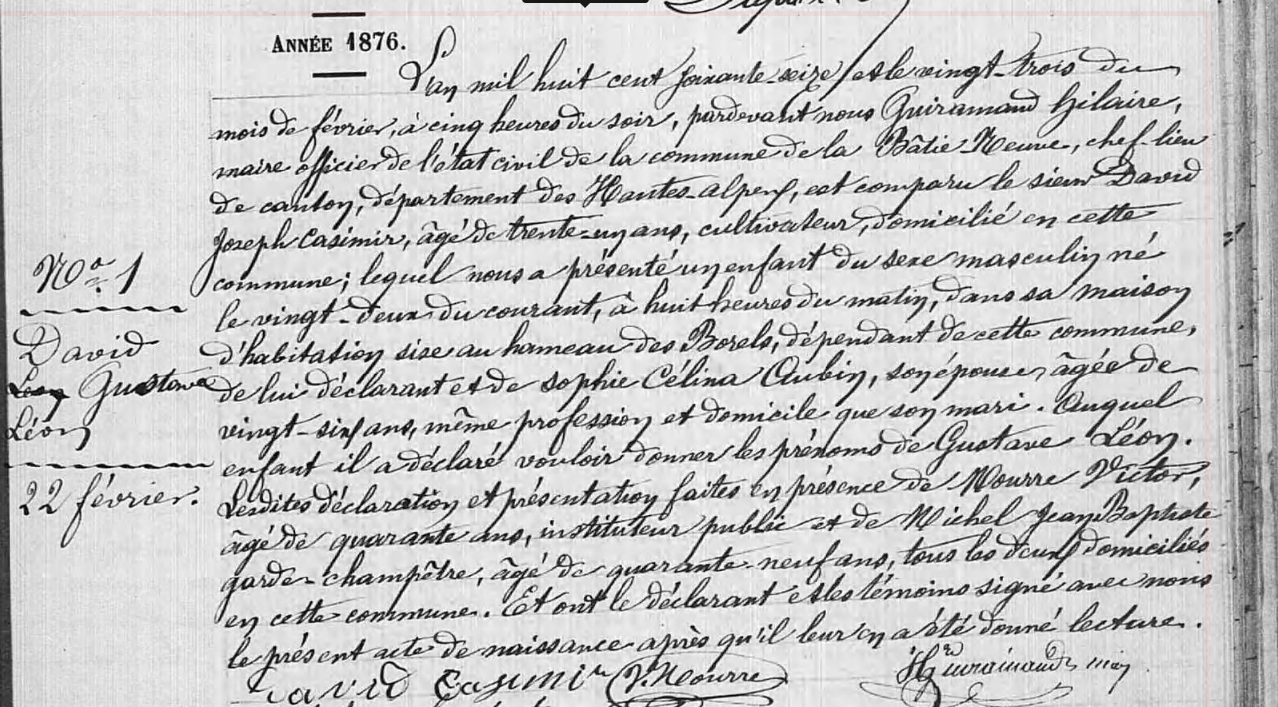 ANNÉE 1876.
L'an mil huit cent soixante seize et le vingt-trois du
mois de février, à cinq heures du soir, pardevant nous Guiramand Hilaire,
maire officier de l'état civil de la commune de la Bâtie Neuve, chef-lieu
de canton, département des Hautes-alpes, est comparu le sieur David
Joseph Casimir, âgé de trente-un ans, cultivateur, domicilié en cette
commune; lequel nous a présenté un enfant du sexe masculin né
le vingt-deux du courant, à huit heures du matin, dans sa maison
d'habitation sise au hameau des Borels, dépendant de cette commune,
de lui déclarant et de Sophie Célina Aubin, son épouse, âgée de
vingt-six ans, même profession et domicile que son mari. Auquel
enfant il a déclaré vouloir donner les prénoms de Gustave Léon.
Lesdites déclaration et présentation faites en présence de Mourre Victor,
âgé de quarante ans, instituteur public et de Michel Jean Baptiste
garde-champêtre, âgé de quarante-neuf ans, tous les deux domiciliés
en cette commune. Et ont le déclarant et les témoins signé avec nous
le présent acte de naissance après qu'il leur en a été donné lecture.
David Casimir V. Mourre Guiramand
No. 1
David
Léon Gustave
Léon
22 février.